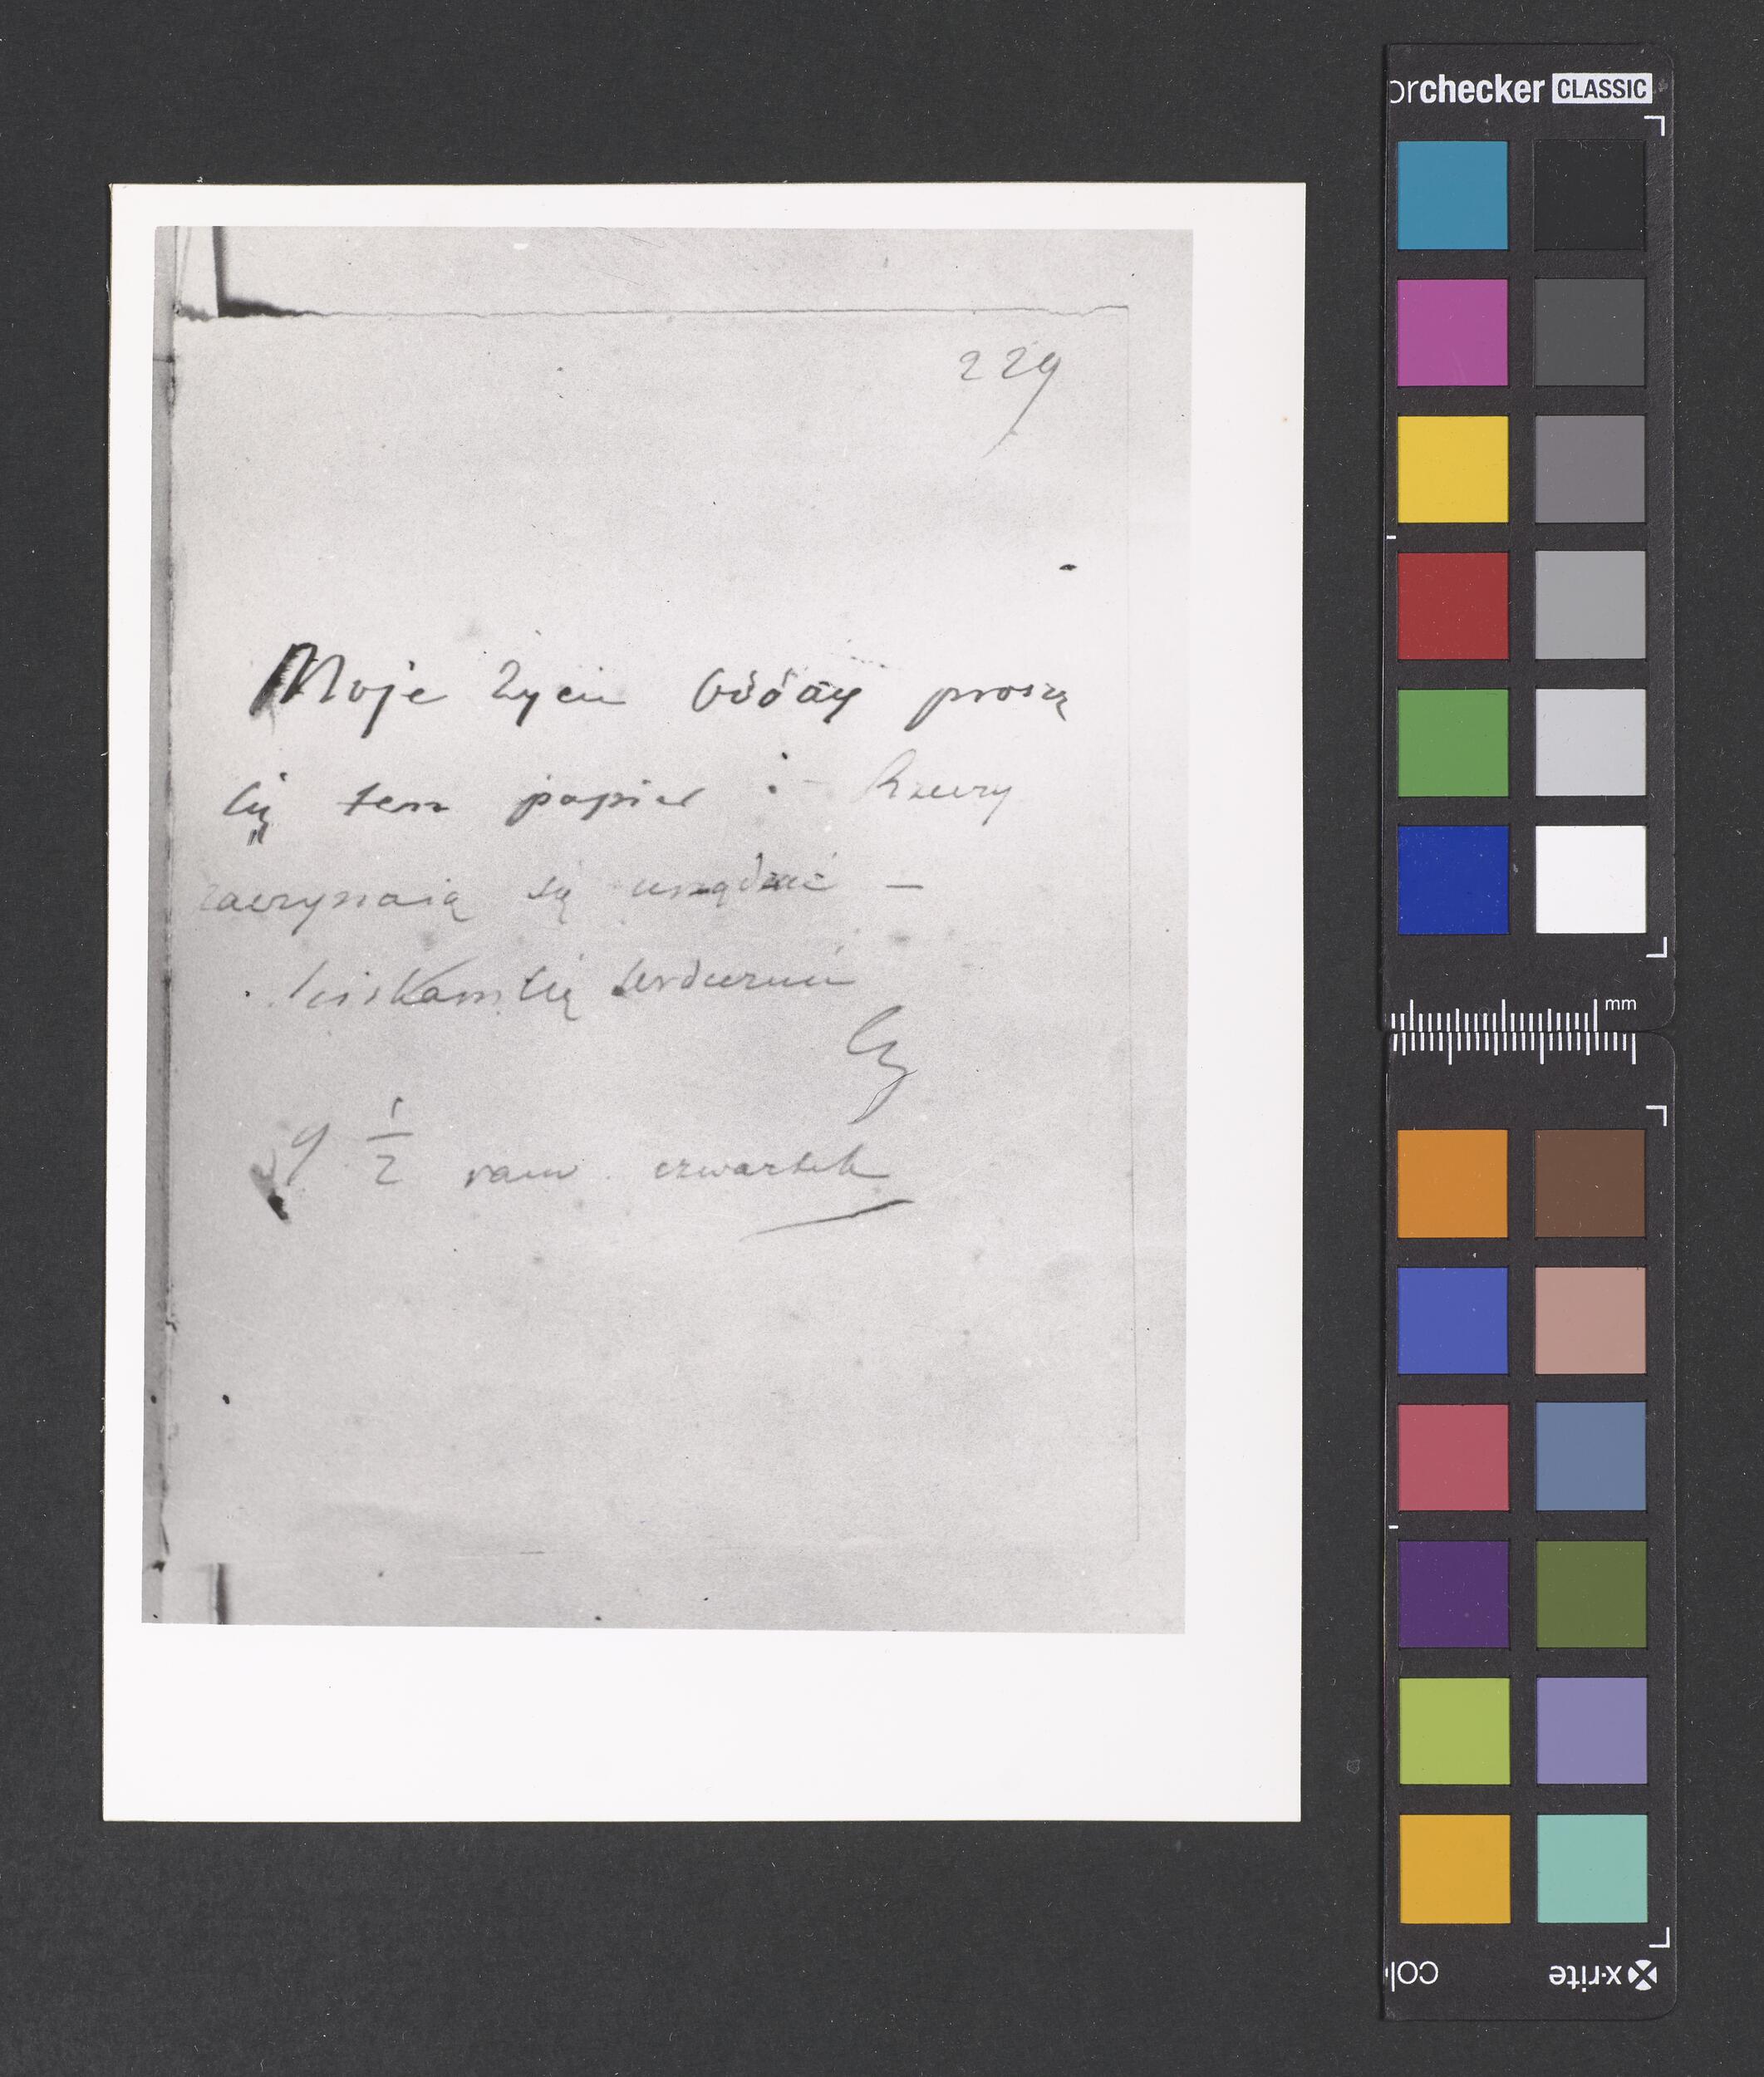 229
Moje życie Odday proszę
Cię ten papier :- Rzeczy
zaczynaią się urządzać —
Ściskam Cię serdecznie
Cz
9 1/2 rano. czwartek
orchecker CLASSIC
mm
x·rite
col